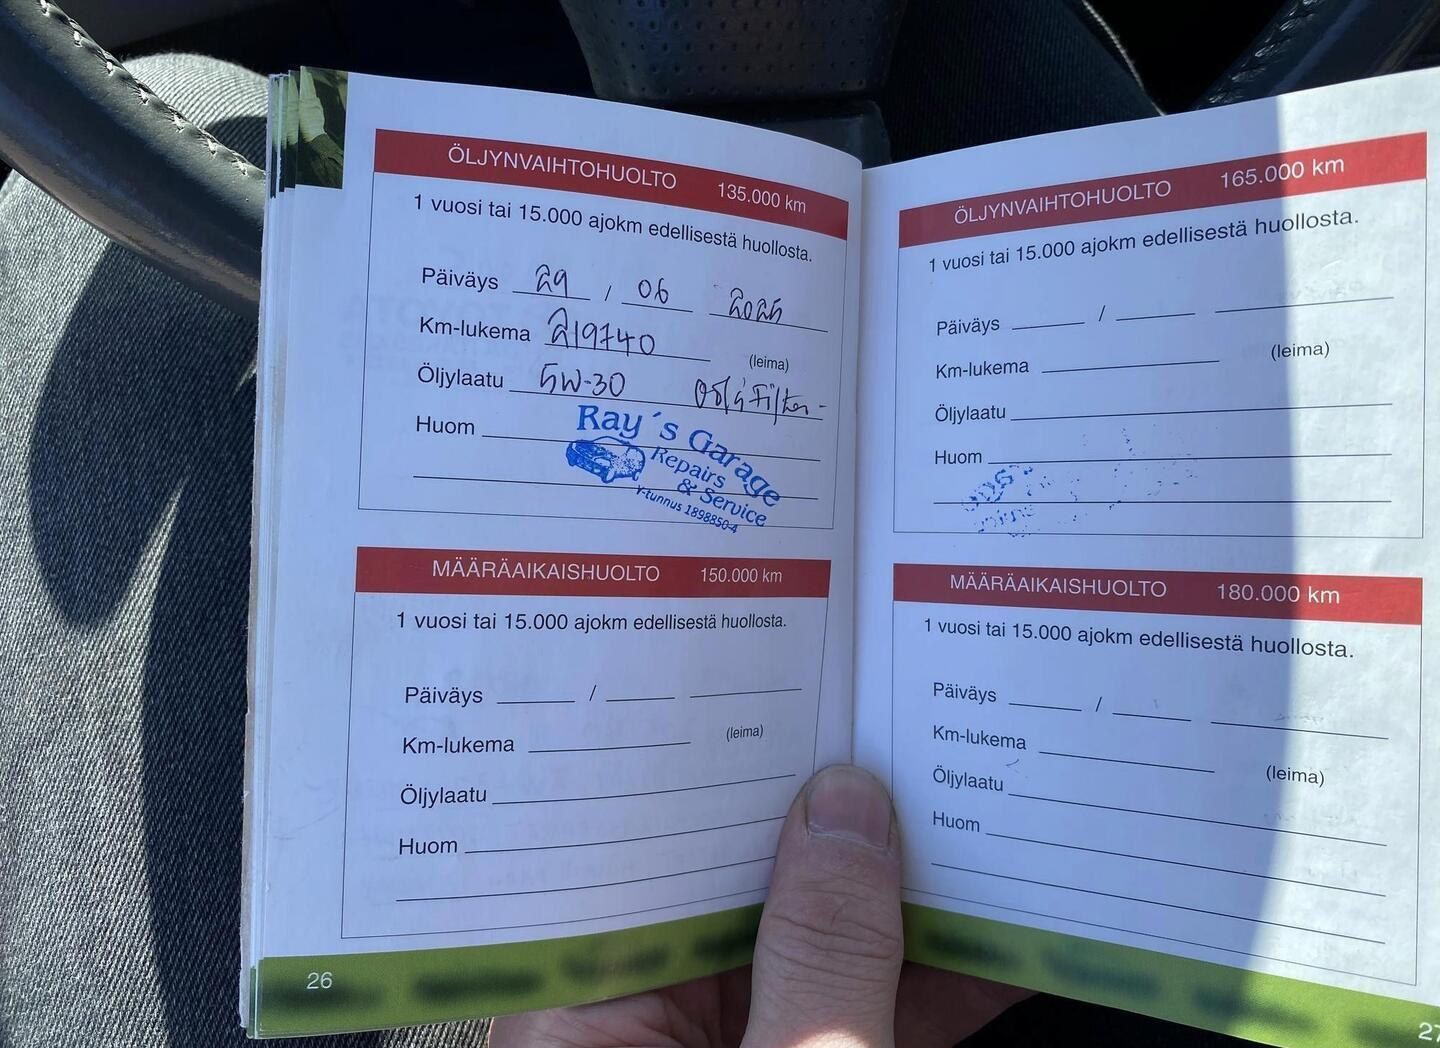 ÖLJYNVAIHTOHUOLTO 135.000 km
1 vuosi tai 15.000 ajokm edellisestä huollosta.
Päiväys 29 / 06 2025
Km-lukema 219740
(leima)
Öljylaatu 5W-30
Huom
Ray´s Garage
Repairs
& Service
Y-tunnus 1898850-4
MÄÄRÄAIKAISHUOLTO 150.000 km
1 vuosi tai 15.000 ajokm edellisestä huollosta.
Päiväys /
Km-lukema
(leima)
Öljylaatu
Huom
26
ÖLJYNVAIHTOHUOLTO 165.000 km
1 vuosi tai 15.000 ajokm edellisestä huollosta.
Päiväys /
Km-lukema
(leima)
Öljylaatu
Huom
MÄÄRÄAIKAISHUOLTO 180.000 km
1 vuosi tai 15.000 ajokm edellisestä huollosta.
Päiväys /
Km-lukema
(leima)
Öljylaatu
Huom
27